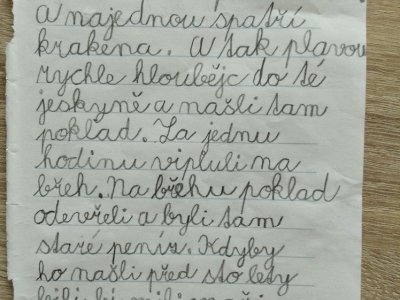 a najednou spatří
krakena. A tak plavou
rychle hloubějc do té
jeskyně a našli tam
poklad. Za jednu
hodinu vipluli na
břeh. Na břehu poklad
odevřeli a byli tam
staré peníz. Kdyby
ho našli před sto lety